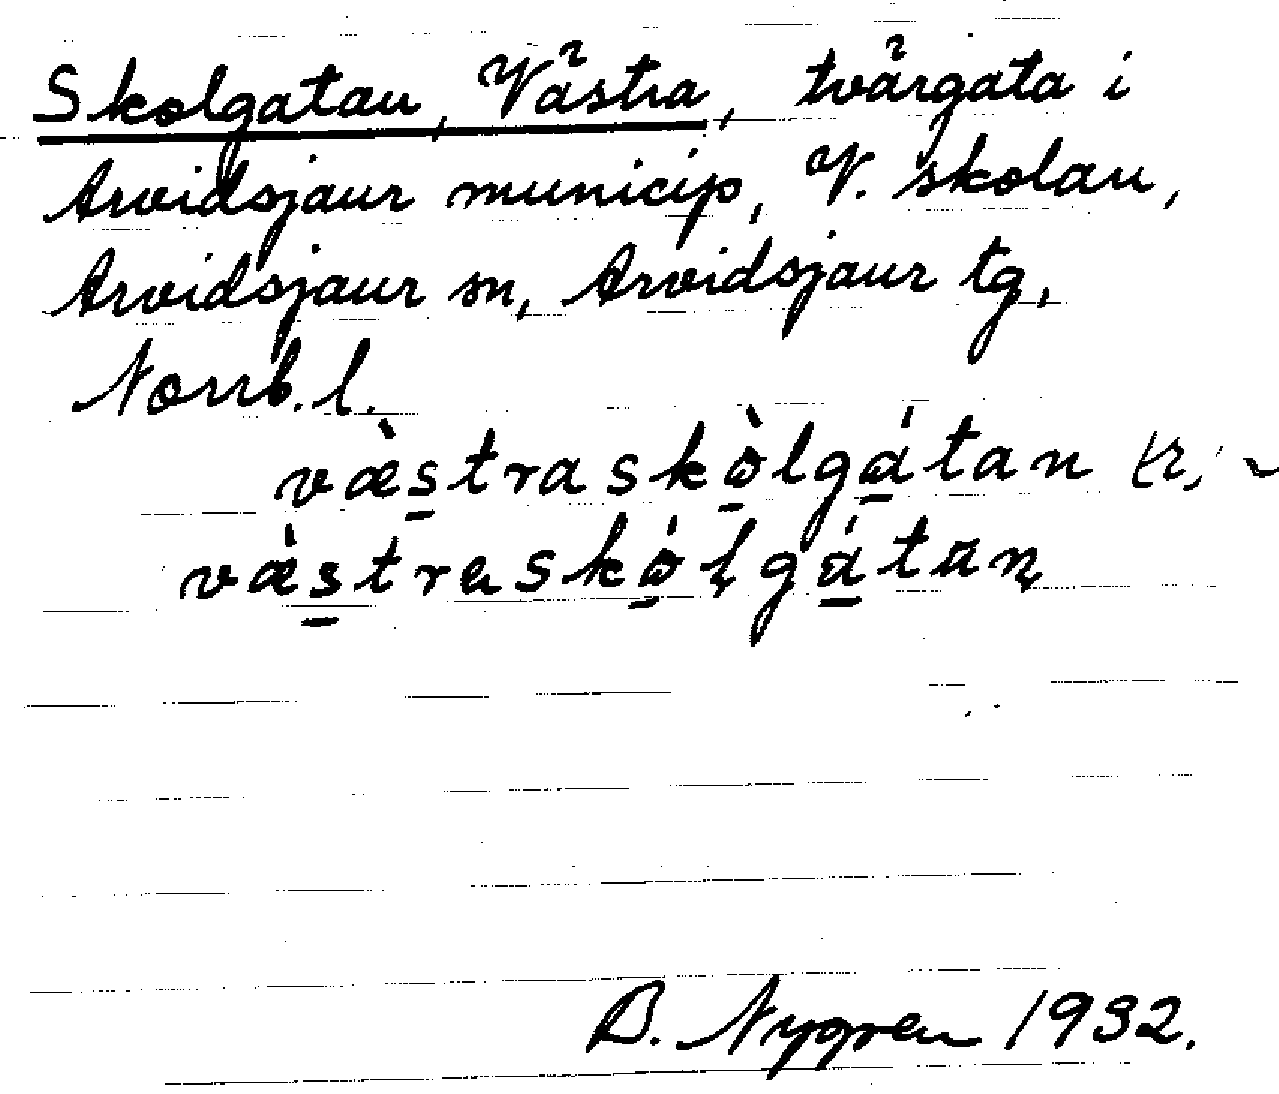 Skolgatan, Västra, tvärgata i
Arvidsjaur municip, V. skolan,
Arvidsjaur sn, Arvidsjaur tg,
Norrb. l.
væ̀s̱traskò̱lgá̱tan
væ̀s̱treskó̱lgá̱tan
B. Nygren 1932.